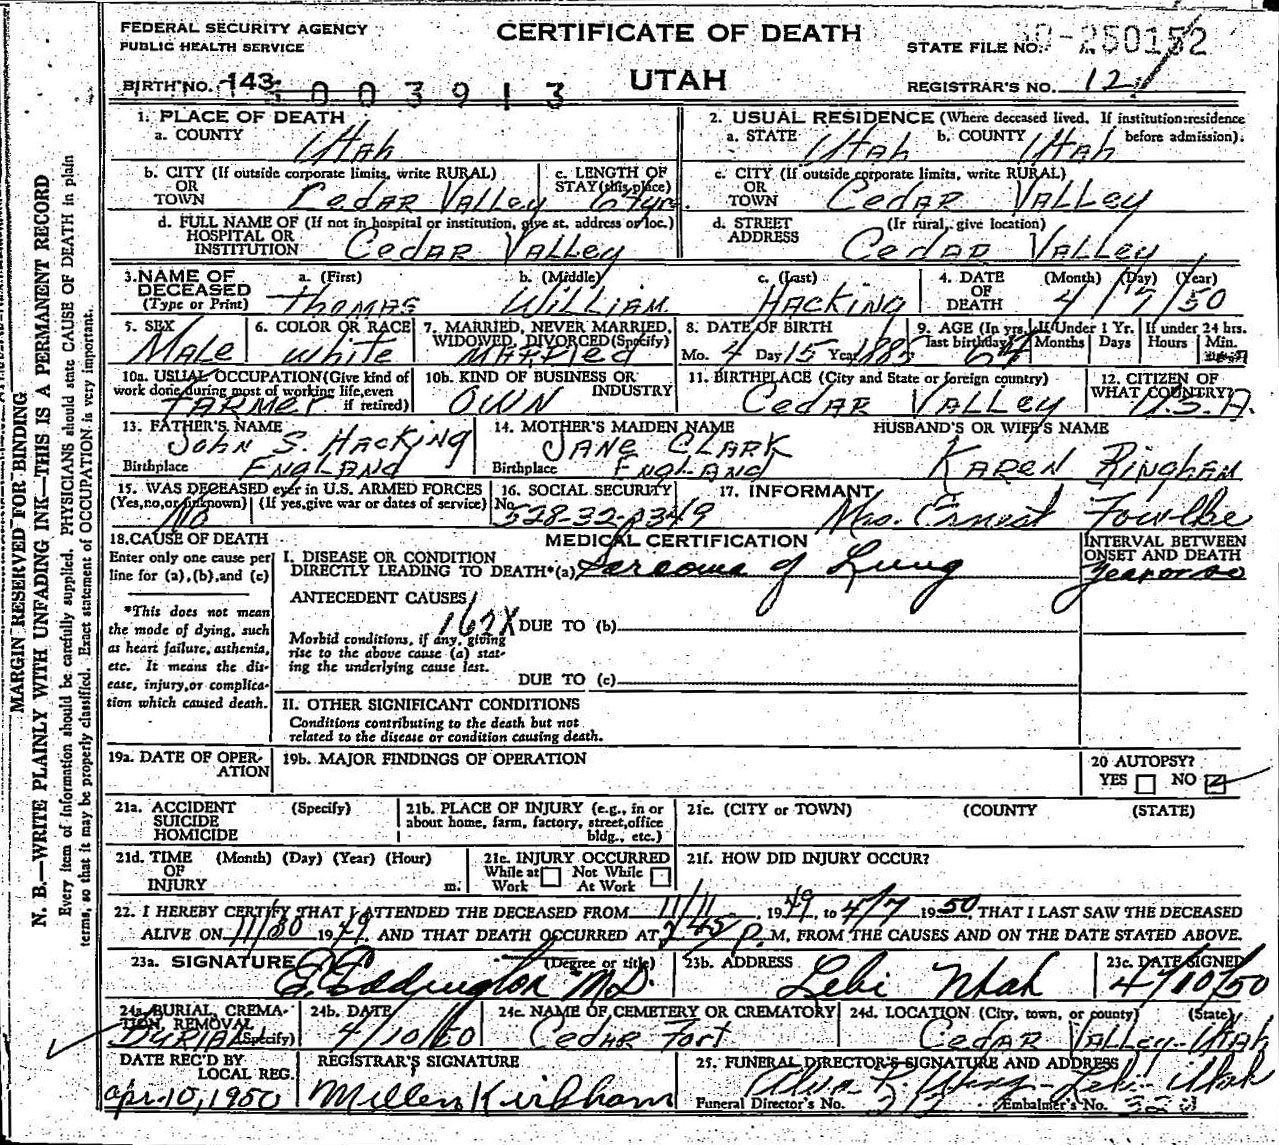 FEDERAL SECURITY AGENCY
PUBLIC HEALTH SERVICE
CERTIFICATE OF DEATH
UTAH
STATE FILE NO. 50-250152
BIRTH NO. 143
003913
REGISTRAR'S NO. 12
1. PLACE OF DEATH
a. COUNTY Utah
2. USUAL RESIDENCE (Where deceased lived. If institution:residence before admission).
a. STATE Utah b. COUNTY Utah
b. CITY (If outside corporate limits, write RURAL) OR TOWN Cedar Valley
c. LENGTH OF STAY (this place) 64 yrs.
c. CITY (If outside corporate limits, write RURAL) OR TOWN Cedar Valley
d. FULL NAME OF (If not in hospital or institution, give st. address or loc.) HOSPITAL OR INSTITUTION Cedar Valley
d. STREET ADDRESS (If rural, give location) Cedar Valley
3. NAME OF DECEASED (Type or Print)
a. (First) Thomas b. (Middle) William c. (Last) Hacking
4. DATE OF DEATH (Month) (Day) (Year) 4/7/50
5. SEX Male
6. COLOR OR RACE White
7. MARRIED, NEVER MARRIED, WIDOWED, DIVORCED (Specify) Married
8. DATE OF BIRTH Mo. 4 Day 15 Year 1885
9. AGE (In yrs. last birthday) 64
If Under 1 Yr. Months Days
If under 24 hrs. Hours Min.
10a. USUAL OCCUPATION (Give kind of work done during most of working life, even if retired) Farmer
10b. KIND OF BUSINESS OR INDUSTRY Own
11. BIRTHPLACE (City and State or foreign country) Cedar Valley
12. CITIZEN OF WHAT COUNTRY? U.S.A.
13. FATHER'S NAME John S. Hacking
Birthplace England
14. MOTHER'S MAIDEN NAME Jane Clark
Birthplace England
HUSBAND'S OR WIFE'S NAME
Karen Bingham
15. WAS DECEASED ever in U.S. ARMED FORCES (Yes, no, or unknown) (If yes, give war or dates of service) No
16. SOCIAL SECURITY No. 528-32-8349
17. INFORMANT Mrs. Ernest Fowlke
18. CAUSE OF DEATH
Enter only one cause per line for (a), (b), and (c)
*This does not mean the mode of dying, such as heart failure, asthenia, etc. It means the disease, injury, or complication which caused death.
MEDICAL CERTIFICATION
I. DISEASE OR CONDITION DIRECTLY LEADING TO DEATH*(a) Sarcoma of Lung
INTERVAL BETWEEN ONSET AND DEATH
Year or so
ANTECEDENT CAUSES
162X
DUE TO (b)
Morbid conditions, if any, giving rise to the above cause (a) stating the underlying cause last.
DUE TO (c)
II. OTHER SIGNIFICANT CONDITIONS
Conditions contributing to the death but not related to the disease or condition causing death.
19a. DATE OF OPERATION
19b. MAJOR FINDINGS OF OPERATION
20 AUTOPSY?
YES NO
21a. ACCIDENT SUICIDE HOMICIDE (Specify)
21b. PLACE OF INJURY (e.g., in or about home, farm, factory, street, office bldg., etc.)
21c. (CITY or TOWN) (COUNTY) (STATE)
21d. TIME OF INJURY (Month) (Day) (Year) (Hour) m.
21e. INJURY OCCURRED While at Work Not While At Work
21f. HOW DID INJURY OCCUR?
22. I HEREBY CERTIFY THAT I ATTENDED THE DECEASED FROM 11/11 1949, to 4/7 1950, THAT I LAST SAW THE DECEASED
ALIVE ON 11/30 1949 AND THAT DEATH OCCURRED AT 2 45 P. M, FROM THE CAUSES AND ON THE DATE STATED ABOVE.
23a. SIGNATURE (Degree or title) E. Eddington M.D.
23b. ADDRESS Lehi Utah
23c. DATE SIGNED 4/10/50
24a. BURIAL, CREMATION, REMOVAL (Specify) Burial
24b. DATE 4/10/50
24c. NAME OF CEMETERY OR CREMATORY Cedar Fort
24d. LOCATION (City, town, or county) (State) Cedar Valley-Utah
DATE REC'D BY LOCAL REG.
Apr. 10, 1950
REGISTRAR'S SIGNATURE
Millen Kirkham
25. FUNERAL DIRECTOR'S SIGNATURE AND ADDRESS
Lehi-Utah
Funeral Director's No. Embalmer's No.
MARGIN RESERVED FOR BINDING
N. B.—WRITE PLAINLY WITH UNFADING INK—THIS IS A PERMANENT RECORD
Every item of information should be carefully supplied. PHYSICIANS should state CAUSE OF DEATH in plain
terms, so that it may be properly classified. Exact statement of OCCUPATION is very important.